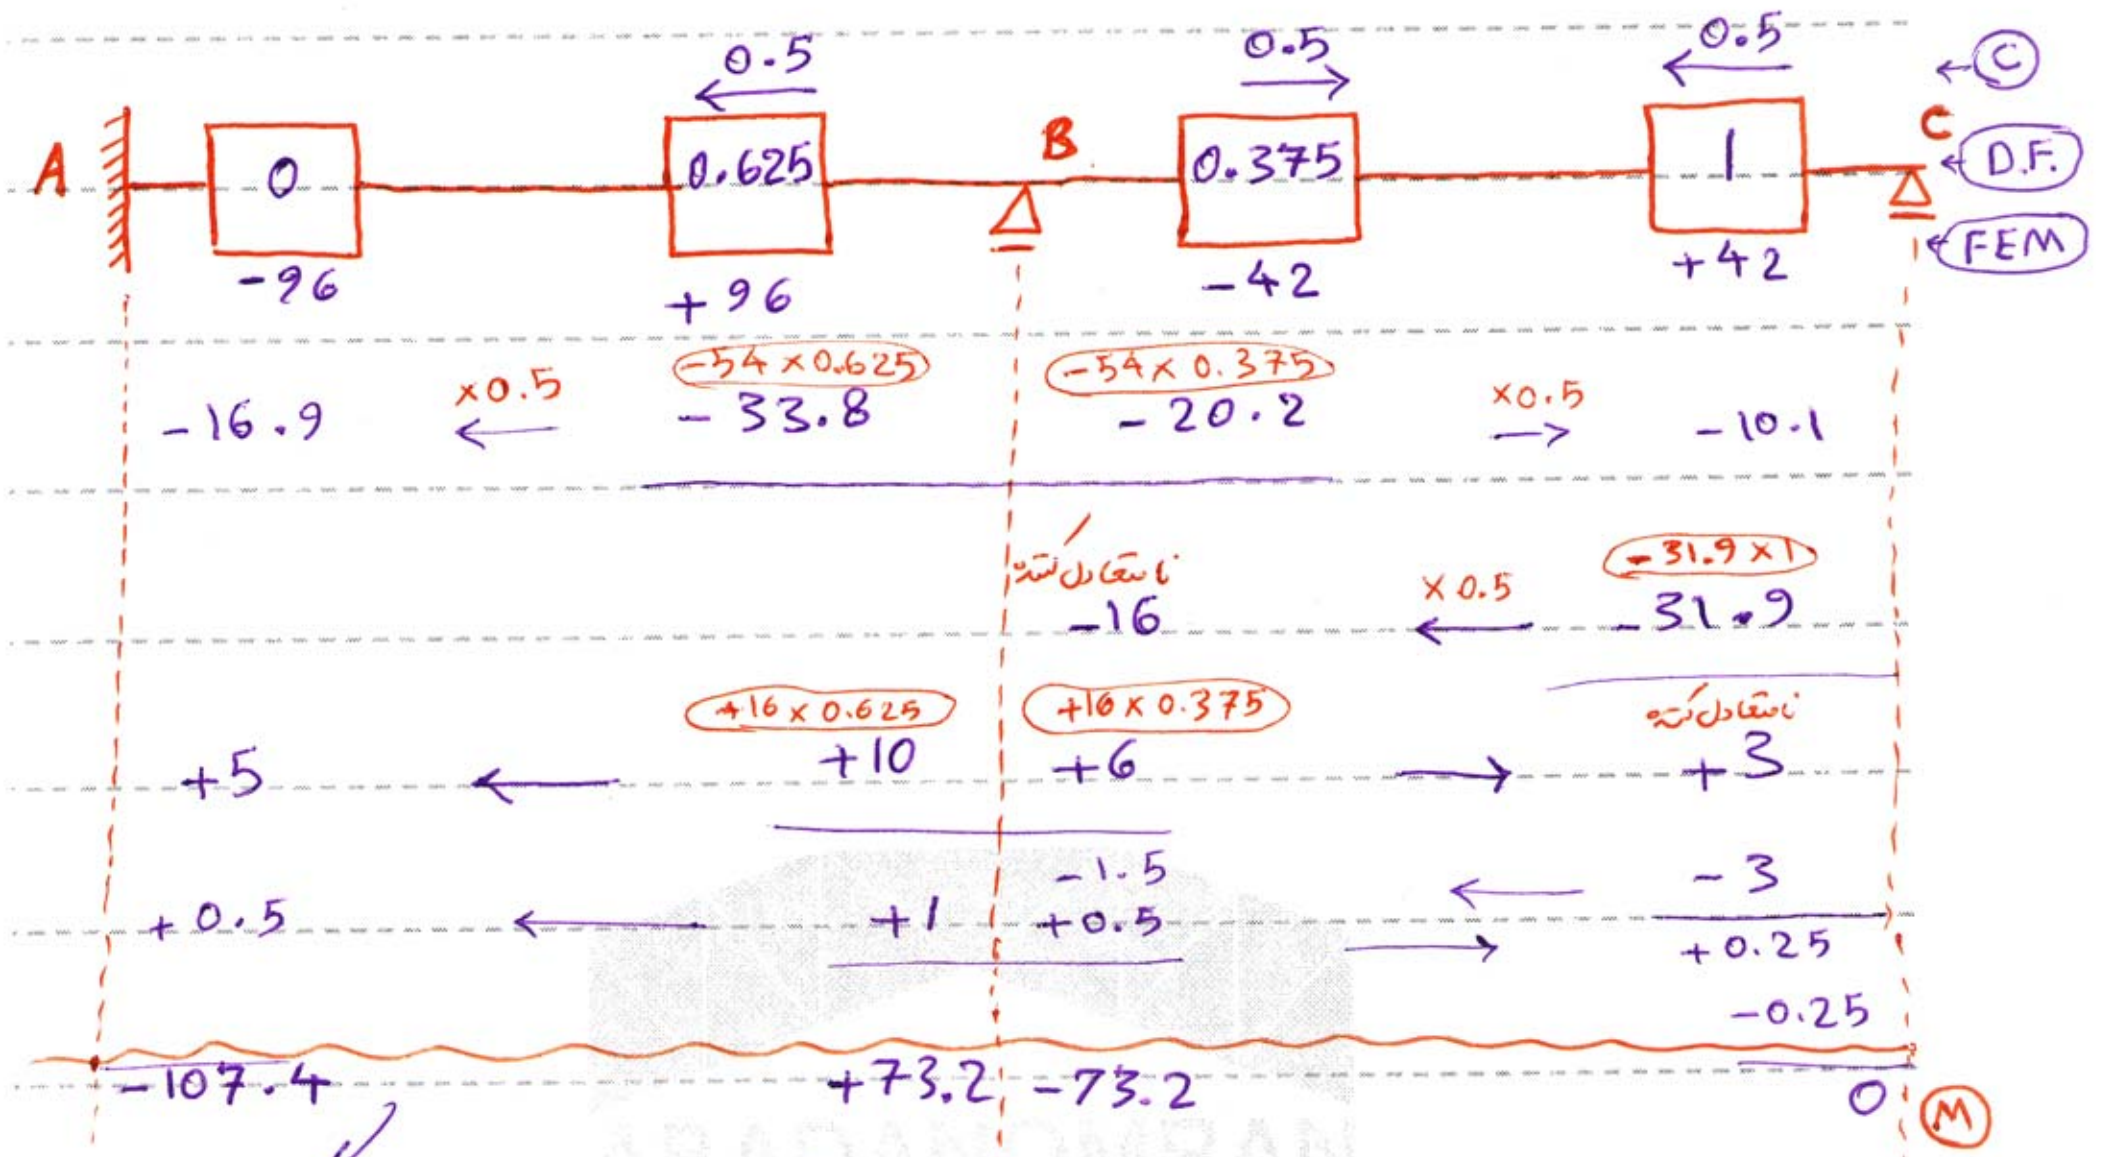 0.5 0.5 0.5 C
A 0 0.625 B 0.375 1 C D.F.
-96 +96 -42 +42 FEM
-54×0.625 -54×0.375
-16.9 ×0.5 -33.8 -20.2 ×0.5 -10.1
نامتعادل کننده -31.9×1
-16 ×0.5 -31.9
+16×0.625 +16×0.375 نامتعادل کننده
+5 +10 +6 +3
-1.5 -3
+0.5 +1 +0.5 +0.25
-0.25
-107.4 +73.2 -73.2 0 M